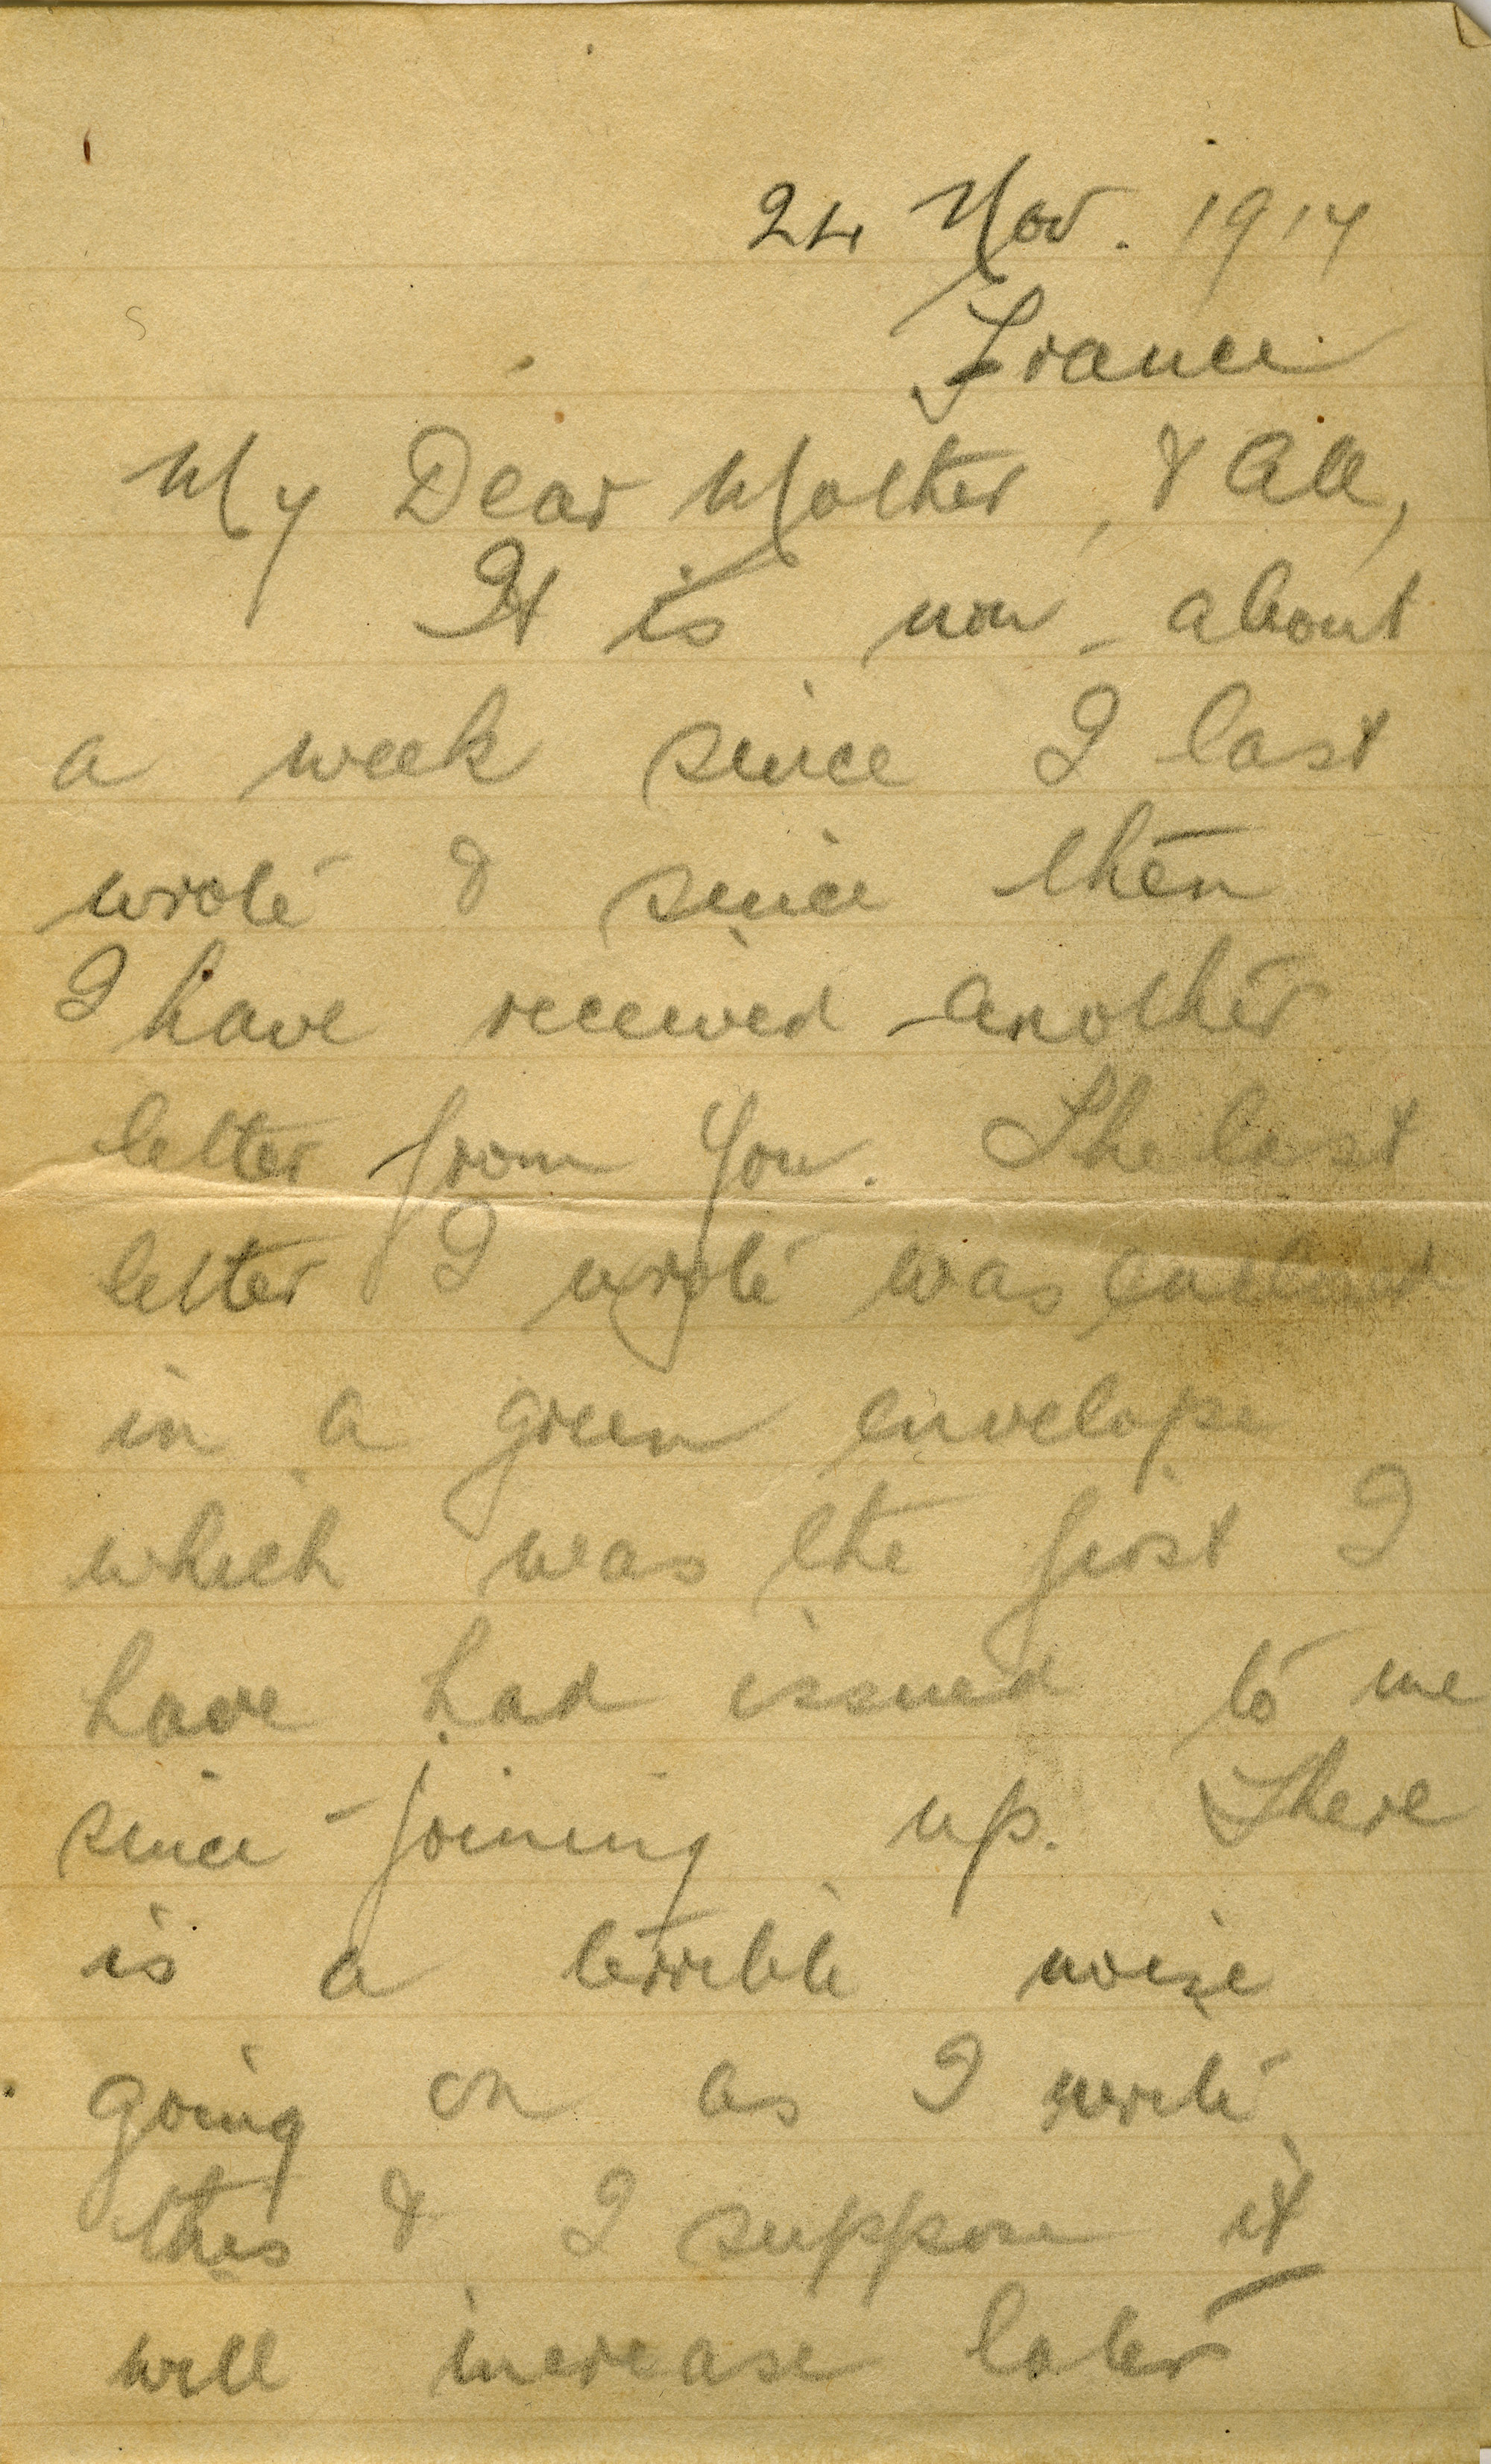 24 Nov. 1917
France
My Dear Mother, & All,
It is now about
a week since I last
wrote & since then
I have received another
letter from you. The last
letter I wrote was
in a green envelope
which was the first I
have had issued to me
since joining up. There
is a terrible noise
going on as I write
this & I suppose it
will increase later